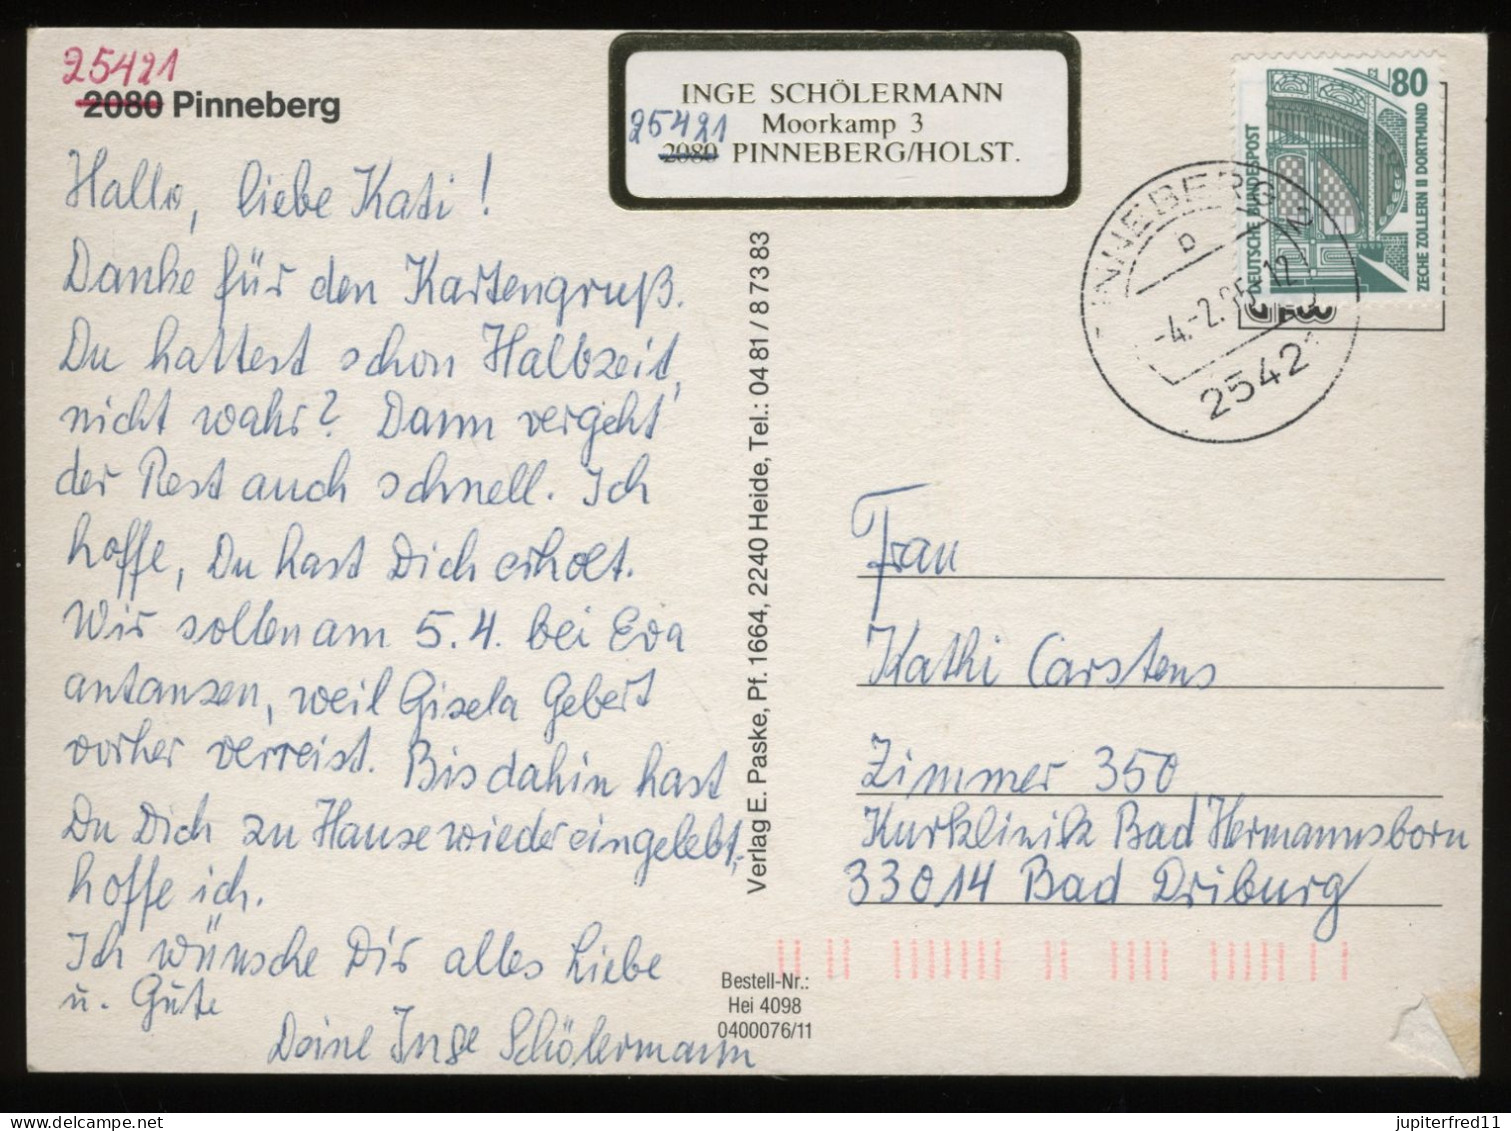 25421
2080 Pinneberg
Hallo, liebe Kati!
Danke für den Kartengruß.
Du hattest schon Halbzeit,
nicht wahr? Dann vergeht
der Rest auch schnell. Ich
hoffe, Du hast Dich erholt.
Wir sollen am 5.4. bei Eva
antanzen, weil Gisela Gebert
vorher verreist. Bis dahin hast
Du Dich zu Hause wieder eingelebt,
hoffe ich.
Ich wünsche Dir alles Liebe
u. Gute
Deine Inge Schölermann
INGE SCHÖLERMANN
Moorkamp 3
25421
2080 PINNEBERG/HOLST.
Verlag E. Paske, Pf. 1664, 2240 Heide, Tel.: 04 81 / 8 73 83
Bestell-Nr.:
Hei 4098
0400076/11
80
DEUTSCHE BUNDESPOST
ZECHE ZOLLERN II DORTMUND
PINNEBERG 2
b
-4.-2.95-12
25421
Frau
Kathi Carstens
Zimmer 350
Kurklinik Bad Hermannsborn
33014 Bad Driburg
jupiterfred11